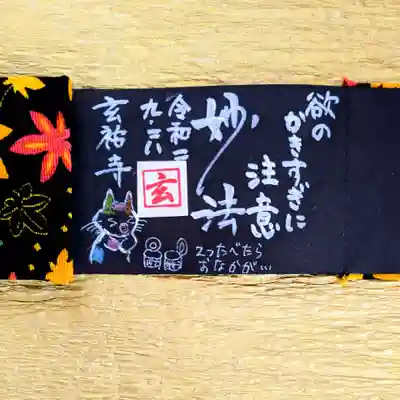 欲の
かきすぎに
注意
妙法
令和二
九・二八
玄祐寺
玄
2つたべたら
おなかが…